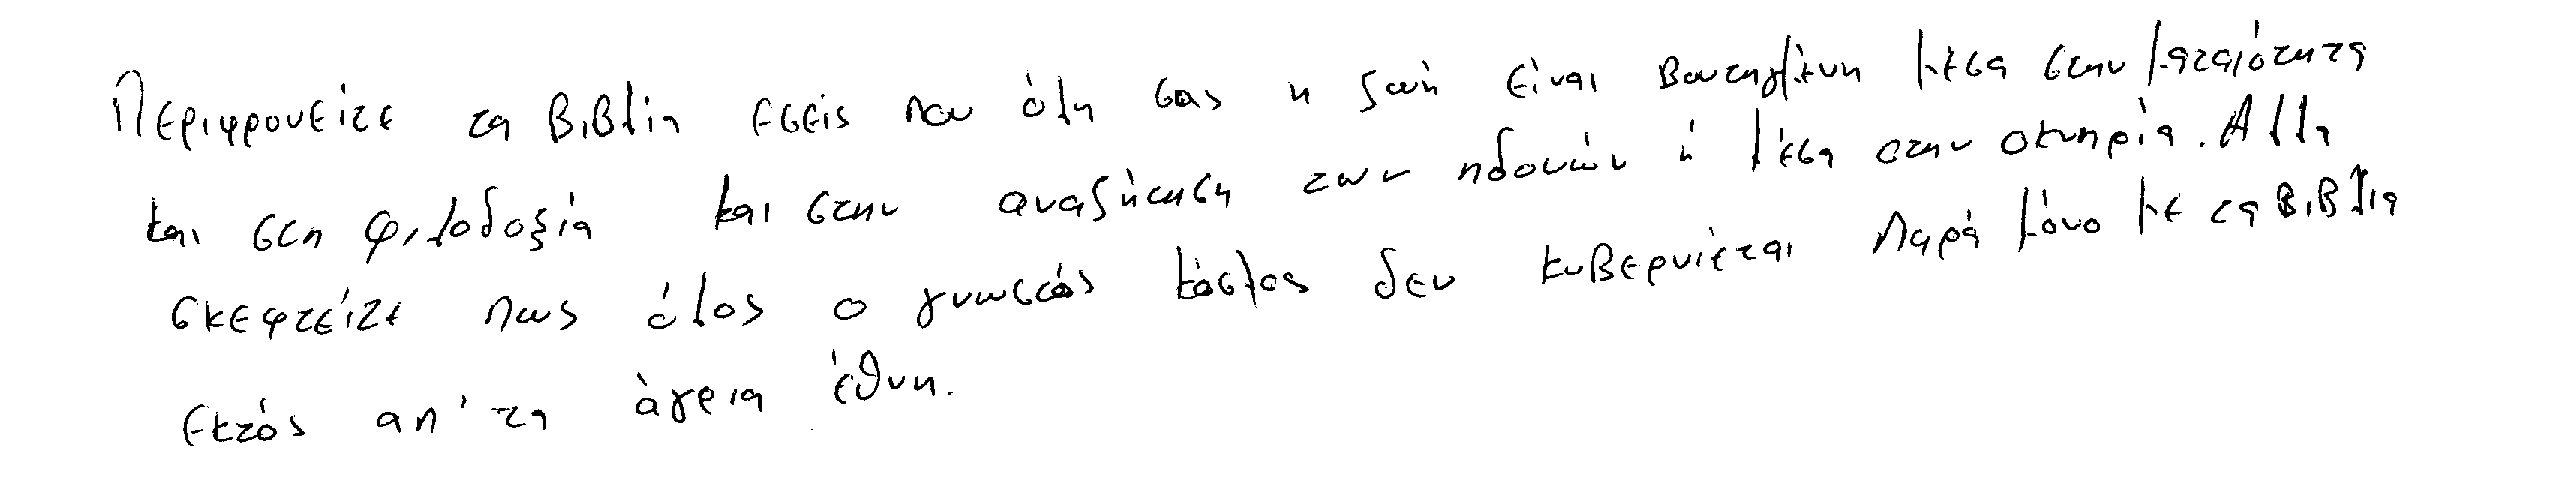 Περιφρονείτε τα βιβλία εσείς που όλη σας η ζωή είναι βουτηγμένη μέσα στην ματαιότητα
και στη φιλοδοξία και στην αναζήτηση των ηδονών ή μέσα στην οκνηρία. Αλλα
σκεφτείτε πως όλος ο γνωστός κόσμος δεν κυβερνιέται παρά μόνο με τα βιβλια
εκτός απ' τα άγρια έθνη.